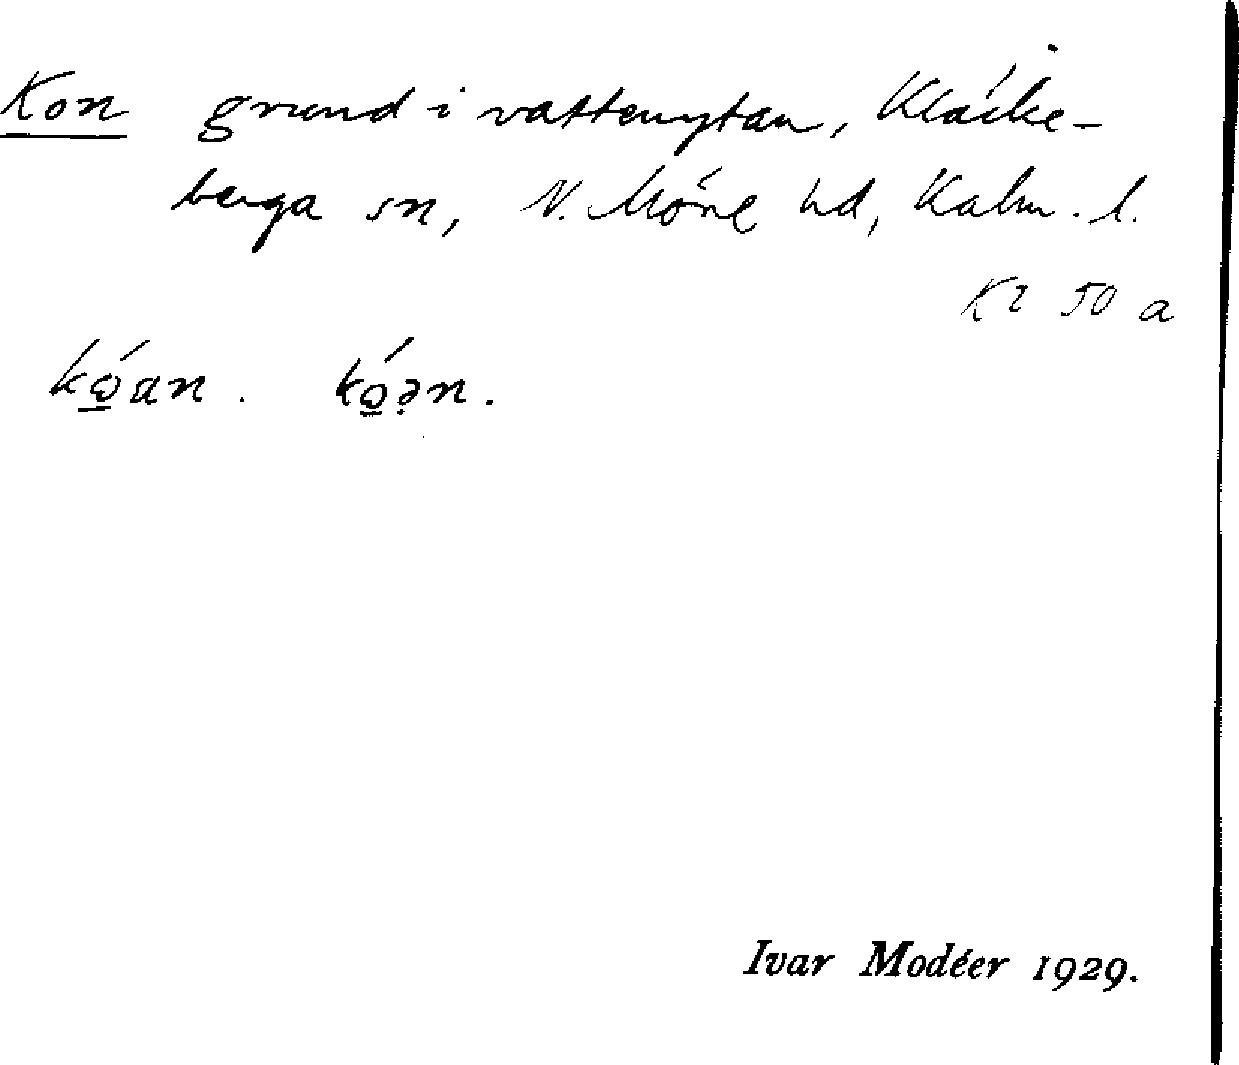 Kon grund i vattenytan, Kläcke-
berga sn, N. Möre hd, Kalm. l.
Kl 50 a
kώ̲an. kώ̲ən.
Ivar Modéer 1929.